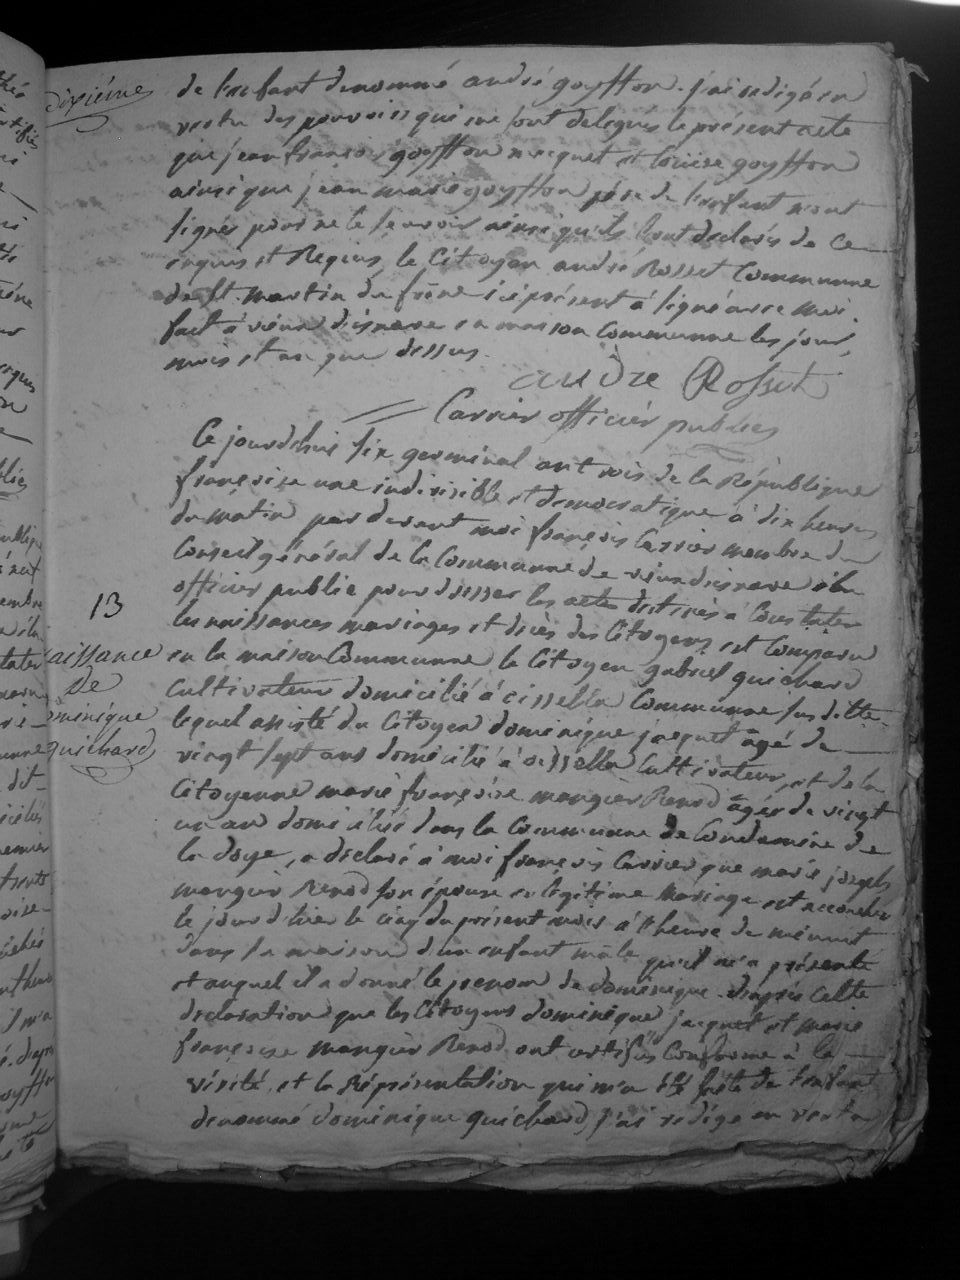 dixiéme
de lenfant denommé andré goyffon. j'ai redigé en
vertu des pouvoirs qui me sont delegués le présent acte
que jean francois goyffon mocquet et louise goyffon
ainsi que jean marie goyffon pére de l'enfant n'ont
signés pour ne le scavoir ainsi quils l'ont declarés de ce
enquis et Requis, le Citoyen andré Rosset Commune
de st. martin du frêne ici présent à signé avec moi.
fait à vieux d'isnave en maison Commune les jour,
mois et an que dessus.
andre Rosset
Carrier officier public
Ce jourdhui six germinal an trois de la République
françoise une indivisible et democratique à dix heures
du matin par devant moi françois Carrier membre du
Conseil général de la Commune de vieu disnave élu
officier public pour dresser les actes destinés à Constater
les naissances mariages et décès des Citoyens, est Comparu
en la maison Commune le Citoyen gabriel guichard
Cultivateur domicilié à cissella Commune sus ditte
lequel assisté du Citoyen dominique jacquet âgé de
vingt sept ans domicilié à cissella Cultivateur, et de la
Citoyenne marie françoise mangier Renod âgée de vingt
un ans domiciliée dans la Commune de Condamine de
la doye, a déclaré à moi françois Carrier que marie joseph
mangier Renod son épouse en légitime mariage est accouchée
le jour d'hier le cinq du présent mois à l'heure de minuit
dans sa maison d'un enfant mâle qu'il m'a présenté
et auquel il a donné le prenom de dominique. d'après cette
declaration que les Citoyens dominique jacquet et marie
françoise mangier Renod ont certifiés Conforme à la
vérité, et la Réprésentation qui m'a été faite de l'enfant
denommé dominique guichard, j'ai redigé en vertu
13
aissance
de
ominique
guichard